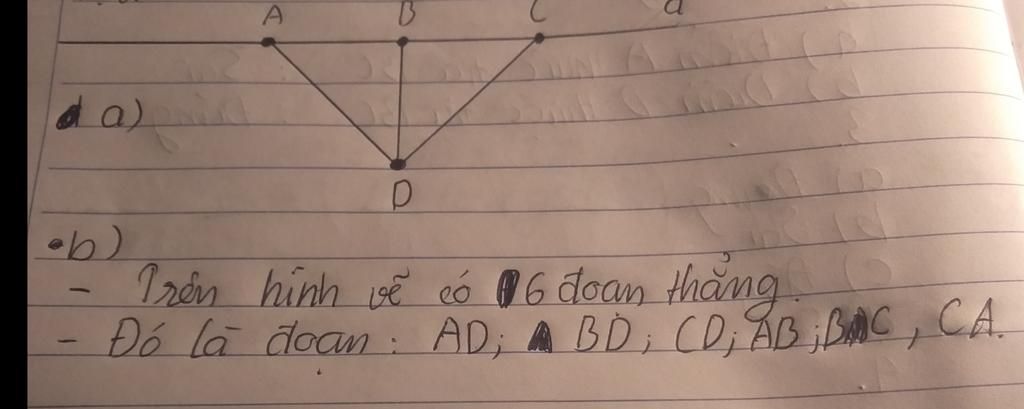 A B C d
a)
D
b)
- Trên hình vẽ có 6 đoạn thẳng.
- Đó là đoạn: AD; BD; CD; AB; BC, CA.